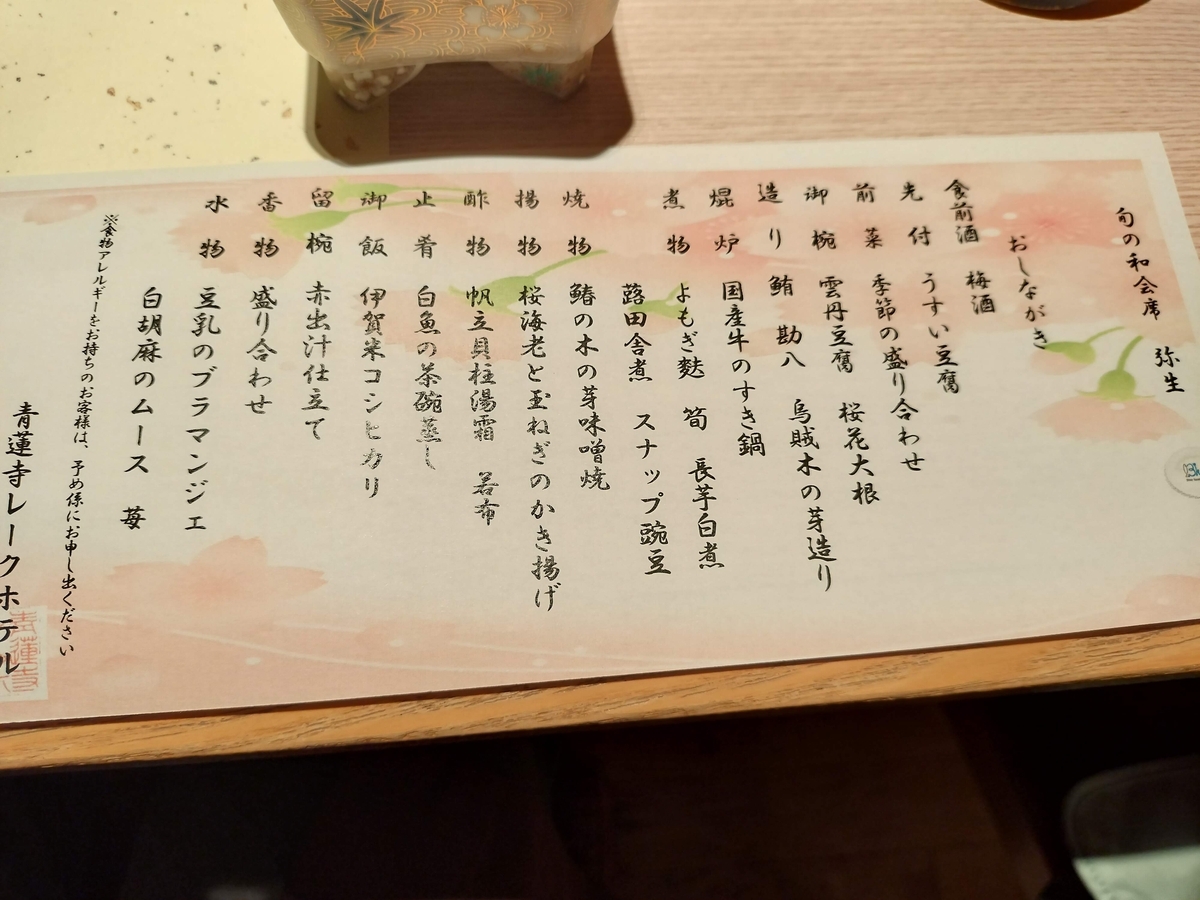 旬の和会席 弥生
おしながき
食前酒 梅酒
先付 うすい豆腐
前菜 季節の盛り合わせ
御椀 雲丹豆腐 桜花大根
造り 鮪 勘八 烏賊木の芽造り
焜炉 国産牛のすき鍋
煮物 よもぎ麩 筍 長芋白煮
蕗田舎煮 スナップ豌豆
焼物 鰆の木の芽味噌焼
揚物 桜海老と玉ねぎのかき揚げ
酢物 帆立貝柱湯霜 若布
止肴 白魚の茶碗蒸し
御飯 伊賀米コシヒカリ
留椀 赤出汁仕立て
香物 盛り合わせ
水物 豆乳のブラマンジェ
白胡麻のムース 苺
※食物アレルギーをお持ちのお客様は、予め係にお申し出ください
青蓮寺レークホテル
青蓮寺